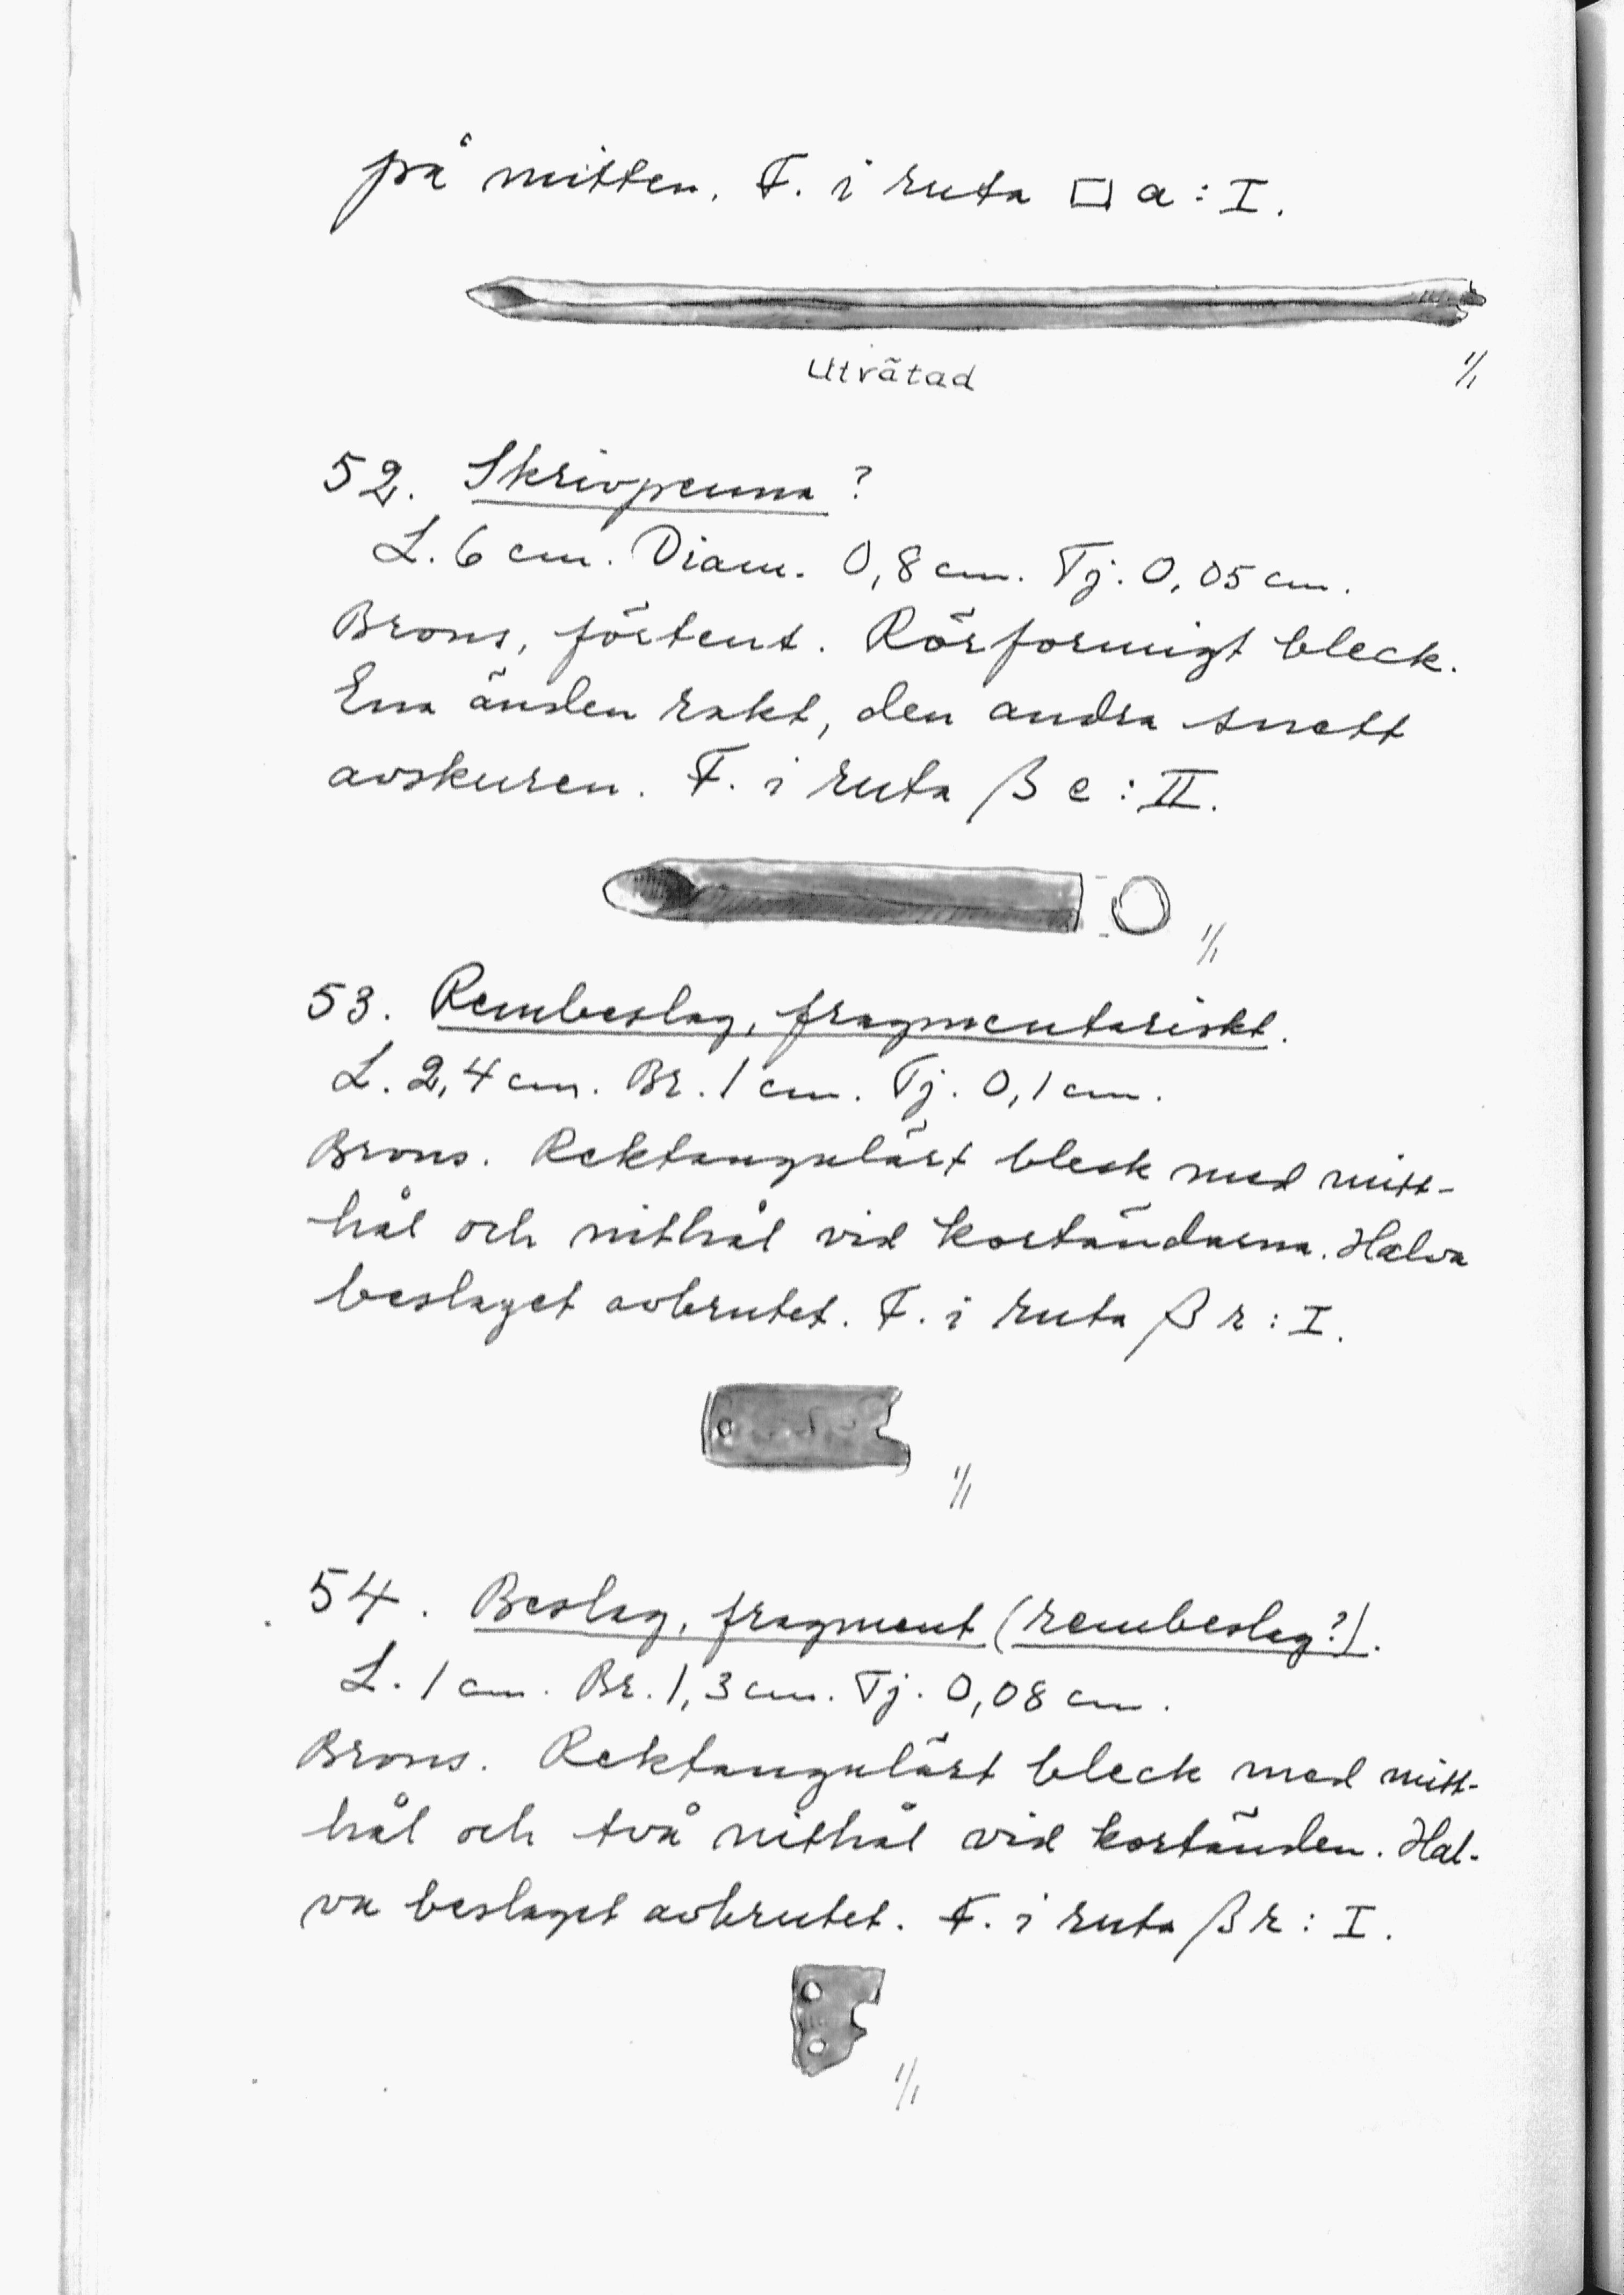 på mitten. F. i ruta □ a : I.
Utvätad
1/1
52. Skrivpenna ?
L. 6 cm. Diam. 0,8 cm. Tj. 0,05 cm.
Brons, förtent. Rörformigt bleck.
Ena änden rakt, den andra snett
avskuren. F. i ruta β e : II.
1/1
53. Rembeslag, fragmentariskt.
L. 2,4 cm. Br. 1 cm. Tj. 0,1 cm.
Brons. Rektangulärt bleck med mitt-
hål och nithål vid kortändarna. Halva
beslaget avbrutet. F. i ruta β r : I.
1/1
54. Beslag, fragment (rembeslag?).
L. 1 cm. Br. 1,3 cm. Tj. 0,08 cm.
Brons. Rektangulärt bleck med mitt-
hål och två nithål vid kortänden. Hal-
va beslaget avbrutet. F. i ruta β r : I.
1/1